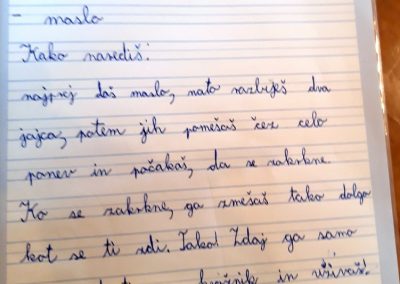 - maslo
Kako narediš:
najprej daš maslo, nato razbiješ dva
jajca, potem jih pomešaš čez celo
ponev in počakaš, da se zakrkne.
Ko se zakrkne, ga zmešaš tako dolgo
kot se ti zdi. Tako! Zdaj ga samo
in uživaš!